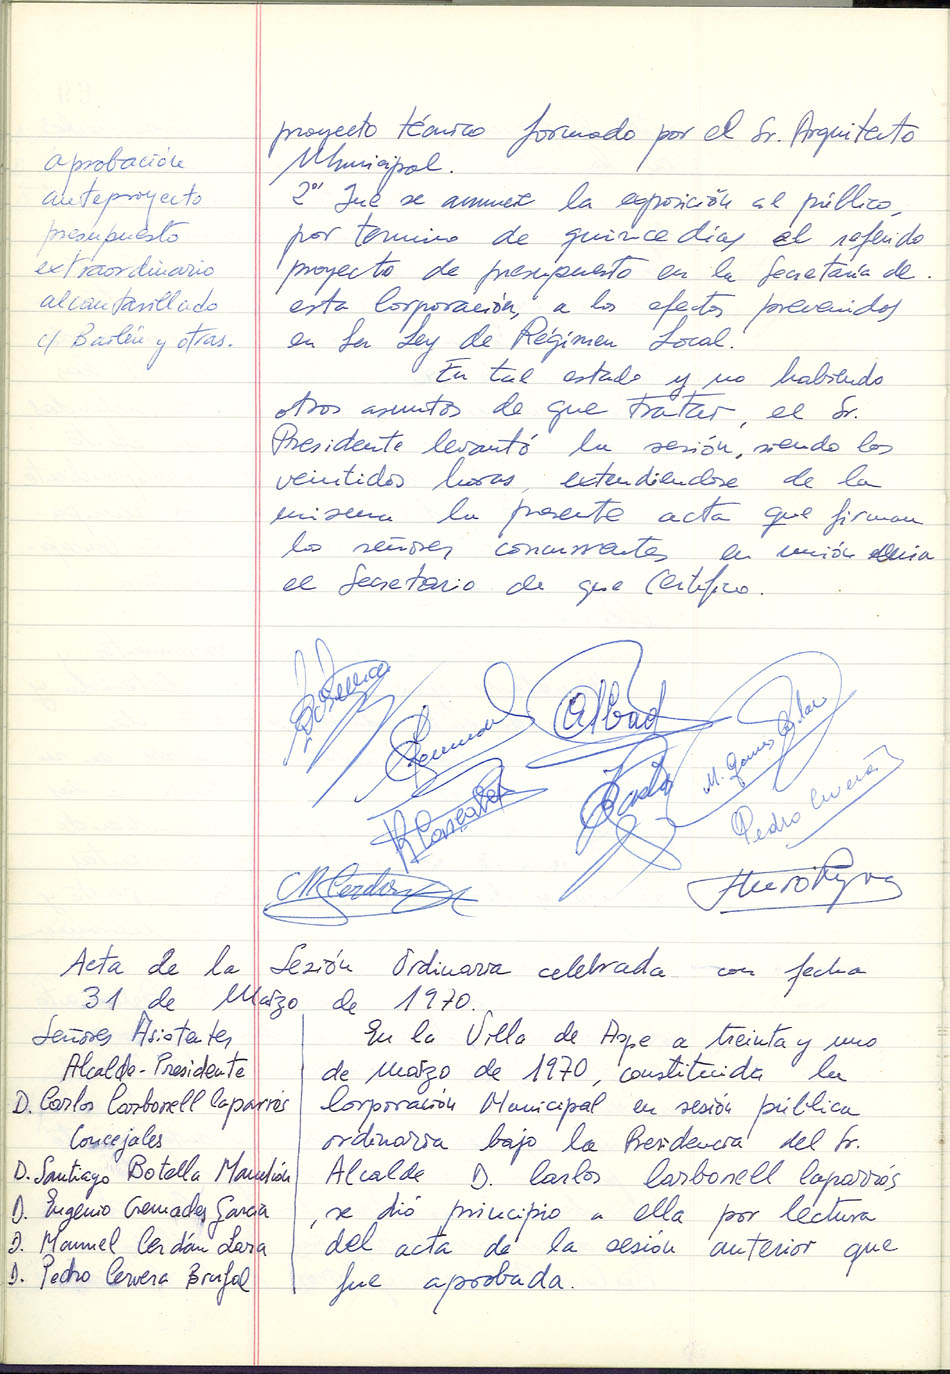 proyecto técnico formado por el Sr. Arquitecto
Municipal.
aprobación
anteproyecto
presupuesto
extraordinario
alcantarillado
c/ Bailén y otras.
2º Que se anuncie la exposición al público,
por termino de quince días el referido
proyecto de presupuesto en la Secretaría de
esta Corporación, a los efectos prevenidos
en La Ley de Régimen Local.
En tal estado y no habiendo
otros asuntos de que tratar, el Sr.
Presidente levantó la sesión, siendo las
veintidos horas, extendiendose de la
misma la presente acta que firman
los señores concurrentes en unión
el Secretario de que Certifico.
Albad
M. Gomis
Pedro Cerverá
M. Cerdán
Acta de la Sesión Ordinaria celebrada con fecha
31 de Marzo de 1970.
Señores Asistentes
Alcalde-Presidente
D. Carlos Carbonell Caparrós
Concejales
D. Santiago Botella
D. Eugenio Cremades Garcia
D. Manuel Cerdán Lara
D. Pedro Cervera
En la Villa de Aspe a treinta y uno
de Marzo de 1970, constituida la
Corporación Municipal en sesión pública
ordinaria bajo la Presidencia del Sr.
Alcalde D. Carlos Carbonell Caparrós
, se dió principio a ella por lectura
del acta de la sesión anterior que
fue aprobada.